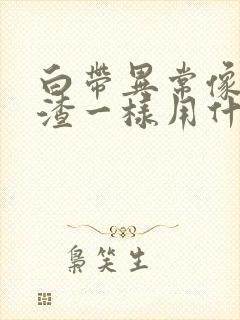 白帶異常像
渣一樣用什
梟笑生